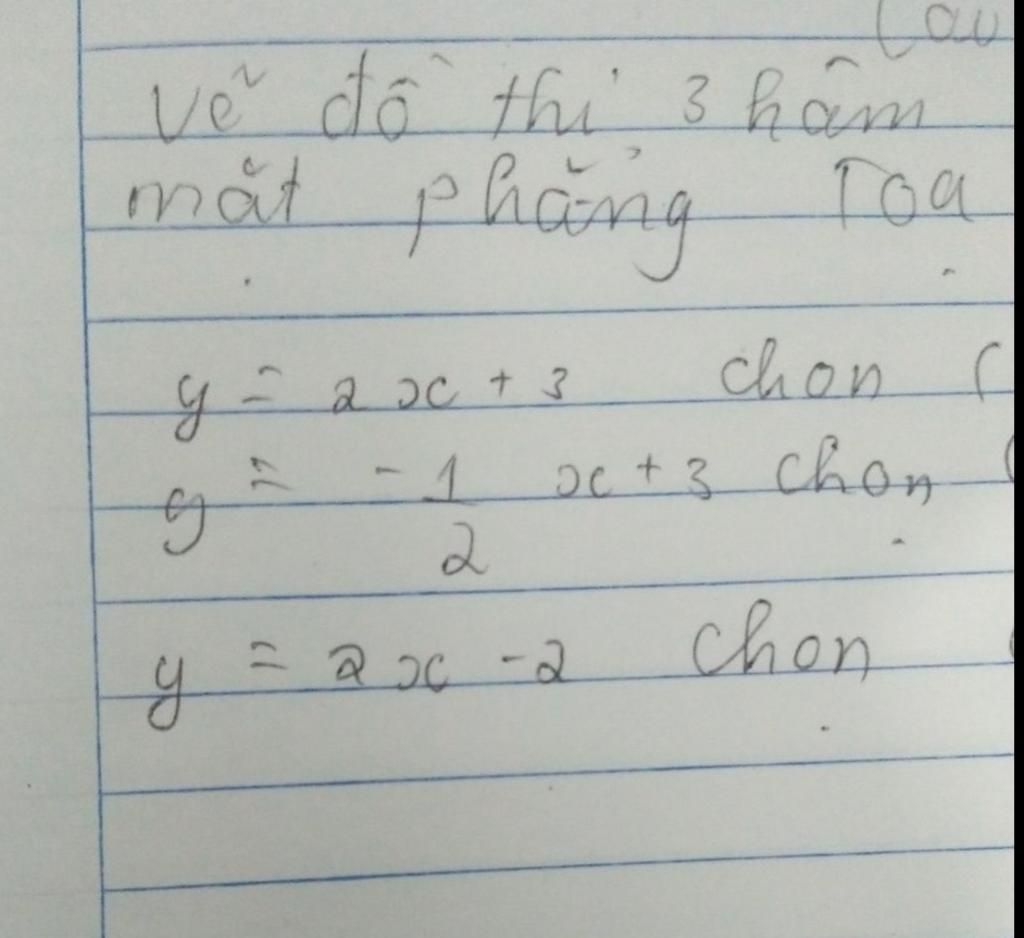 Vẽ đồ thị 3 hâm
mặt phẳng Toạ
y = 2x + 3 chọn (
y = -1/2 x + 3 chọn (
y = 2x - 2 chọn (